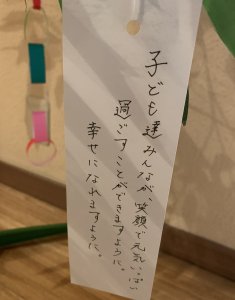 子ども達みんなが、笑顔で元気いっぱい
過ごすことができますように。
幸せになれますように。